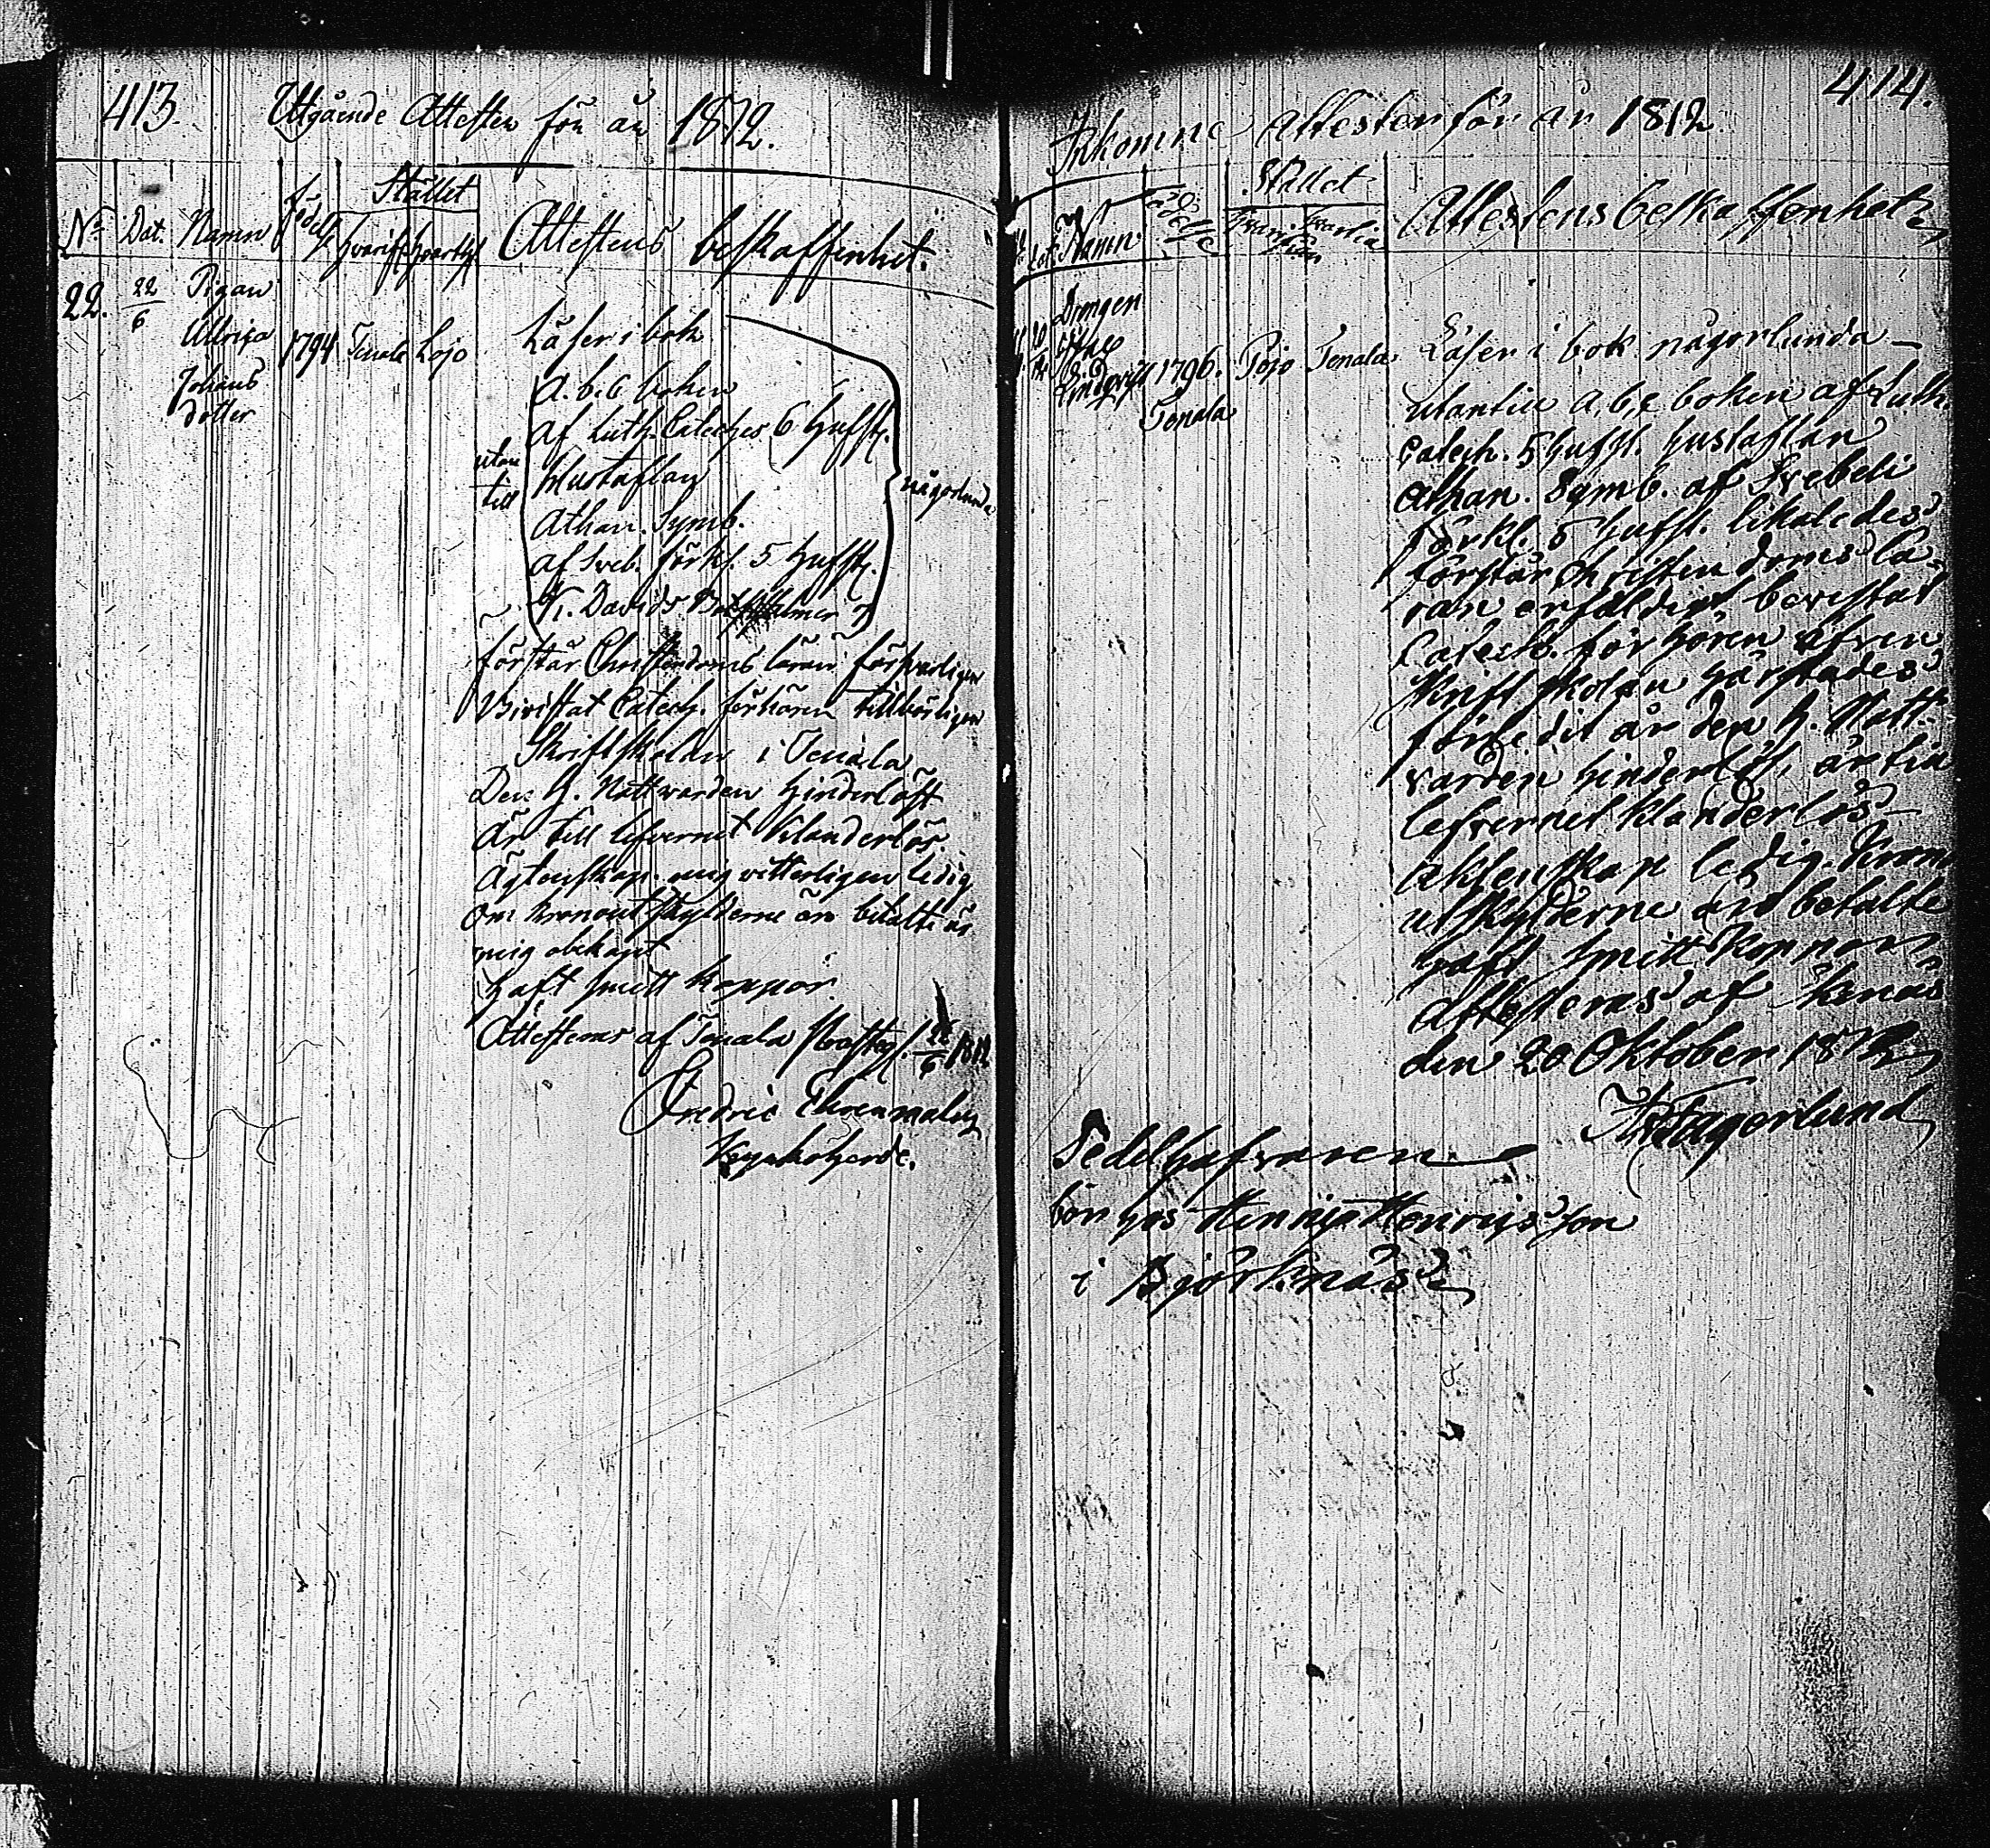 413.
Utgående Attester för år 1812.
Stället
No Dat. Namn född hvarifr. hvarthst Attestens beskaffenhet.
22. 22/6 Pigan
Ullrica
Johans
dotter
1794 Tenala Lojo
Läser i bok
A. b. c boken
af Luth. Catechis 6 Hufst.
utan
till
Hustaflan
någorlunda
Athan. Symb.
af Sveb. förkl. 5 Hufst.
K. Davids Botpsalmer 7
förstår Christendoms läran försvarligen
Bivistat Catech. förhören tillbörligen
Skriftskolan i Tenala
Den H. Nattvarden hinderlöst
Är till lefvernet klanderlös.
Ägtenskap mig vetterligen ledig
Om kronoutskylderne äro betalte är
mig obekant
Haft smitt koppor
Attesteras af Tenala Prostegl. 22/6 1812
Fredric Ehrenmalm
Kyrkoherde.
414.
Inkomne Attester för år 1812
Stället
Namn födelse Hvarifrån Hvartill Attestens beskaffenhet
Drengen
Lindqvist 1796. Pojo Tenala
Tenala
Läser i bok någorlunda
utantill a, b, c boken af Luth.
Catech. 5 Hufst. Hustaflan
Athan. Symb. af Svebeli
förkl. 5 Hufst. likaledes
förstår Christendoms lä-
ran erfaldigt bevistat
Catech. förhören äfven
Skriftskolan härstädes
förledit år den H. Natt-
varden hinderlöst, är till
lefvernet klanderlös
äktenskap ledig. Krono
utskylderne äro betalte
haft smitt koppor
Attesteras af
den 20 Oktober 1812
Fagerlund
Sedelhafvaren
bör hos Henrich Henricsson
i Björknäs